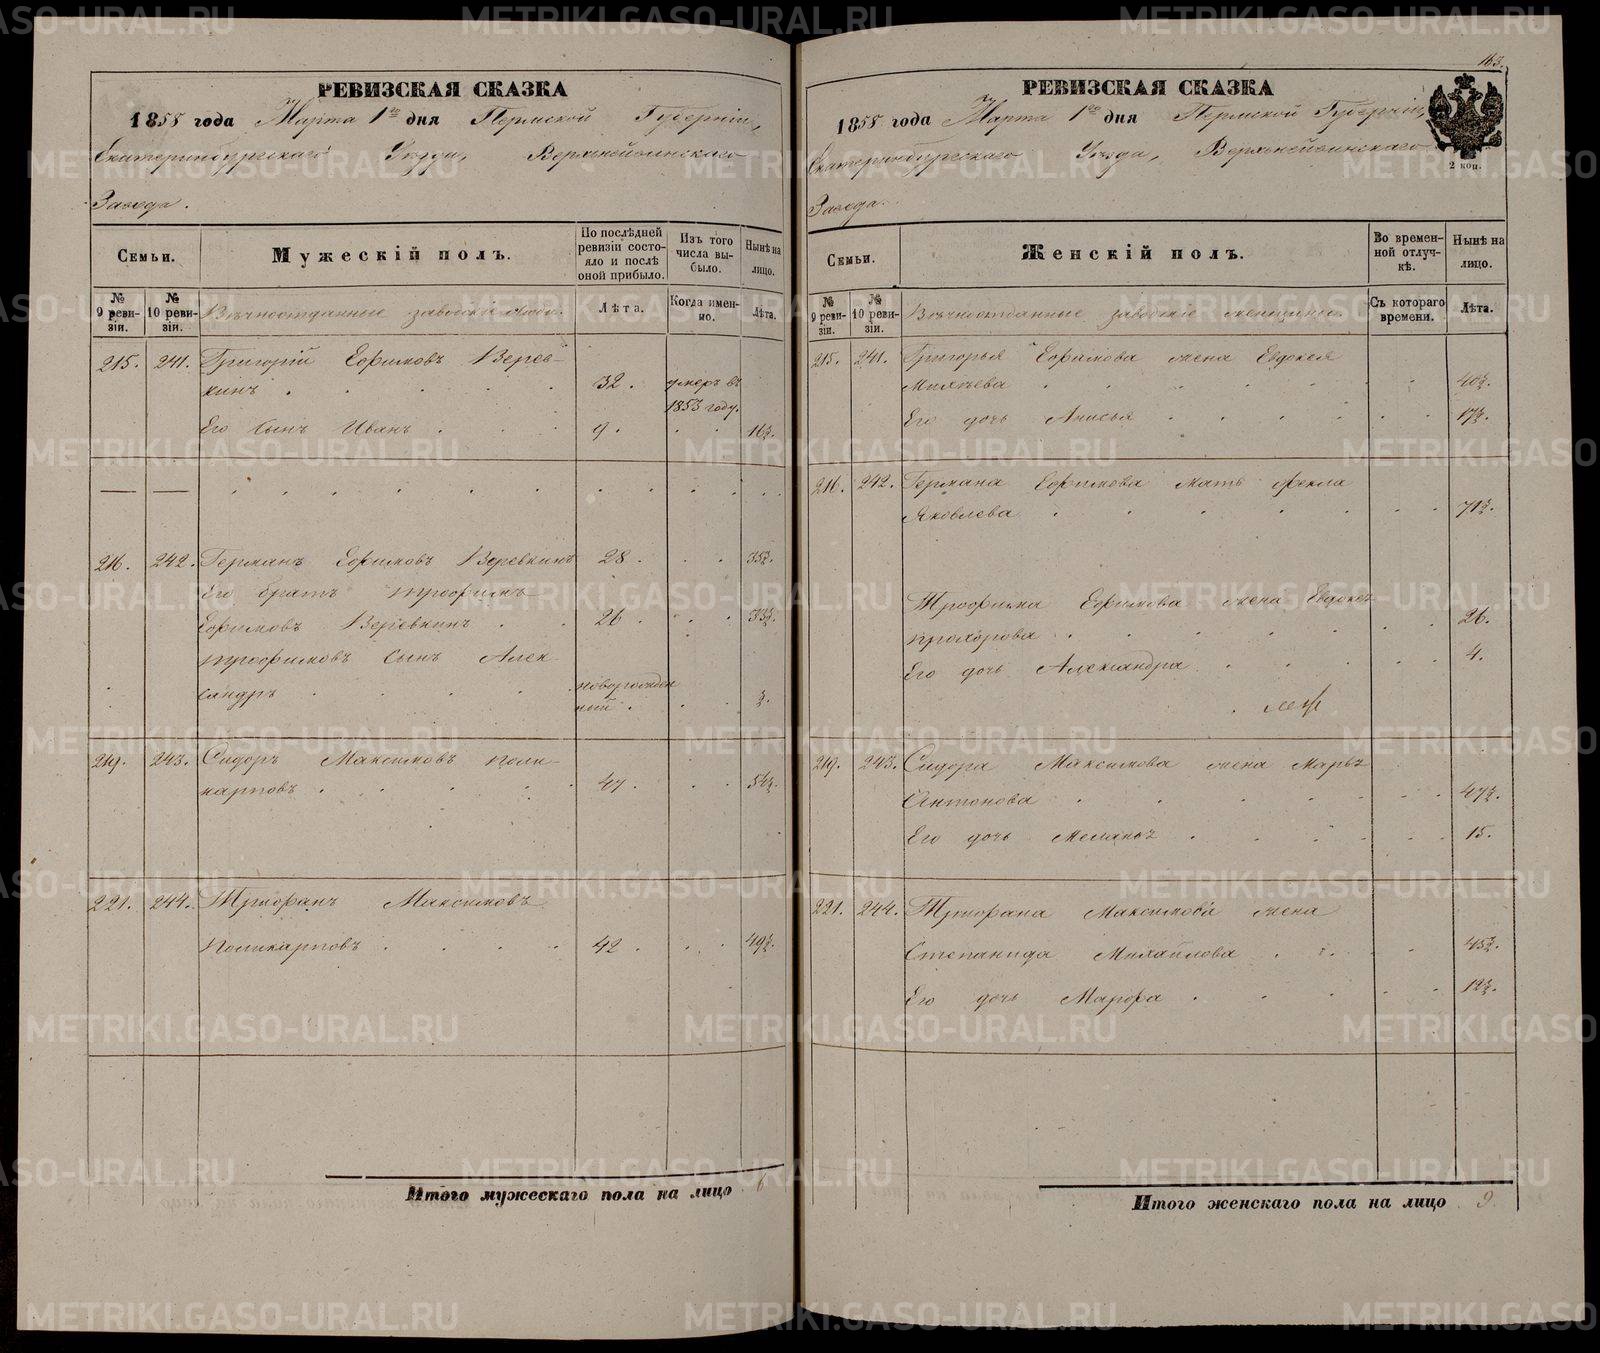 РЕВИЗСКАЯ СКАЗКА
1858 года Марта 1го дня Пермской Губернiи,
Екатеринбургскаго Уѣзда, Верхнейвинскаго
Завода.
Семьи.
Мужескiй полъ.
По послѣдней ревизiи состояло и послѣ оной прибыло.
Изъ того числа выбыло.
Нынѣ на лицо.
№ 9 ревизiи.
№ 10 ревизiи.
Вѣчноотданные заводскiе люди.
Лѣта.
Когда именно.
Лѣта.
215. 241. Григорiй Ефимовъ Верев-
кинъ 32. умеръ въ
1853 году.
Его сынъ Иванъ 9. 16½.
216. 242. Германъ Ефимовъ Веревкинъ 28. 35½.
Его братъ Трофимъ
Ефимовъ Веревкинъ 26. 33½.
Трофимовъ сынъ Алек-
сандръ новорожден
ный ½.
219. 243. Сидоръ Максимовъ Поли-
карповъ 47. 54½.
221. 244. Трифанъ Максимовъ
Поликарповъ 42. 49½.
Итого мужескаго пола на лицо 6
163.
РЕВИЗСКАЯ СКАЗКА
1858 года Марта 1го дня Пермской Губернiи,
Екатеринбургскаго Уѣзда, Верхнейвинскаго
2 коп.
Завода.
Семьи.
Женскiй полъ.
Во временной отлучкѣ.
Нынѣ на лицо.
№ 9 ревизiи.
№ 10 ревизiи.
Вѣчноотданные заводскiе женщины.
Съ котораго времени.
Лѣта.
215. 241. Григорья Ефимова жена Евдокея
Михѣева 40½.
Его дочь Анисья 17½.
216. 242. Германа Ефимова мать Фекла
Яковлева 71½.
Трофима Ефимова жена Евдокѣя
Прохорова 26.
Его дочь Александра 4.
219. 243. Сидора Максимова жена Марья
Антонова 47½.
Его дочь Меланья 15.
221. 244. Трифана Максимова жена
Степанида Михайлова 45½.
Его дочь Марфа 12½.
Итого женскаго пола на лицо 9.
METRIKI.GASO-URAL.RU